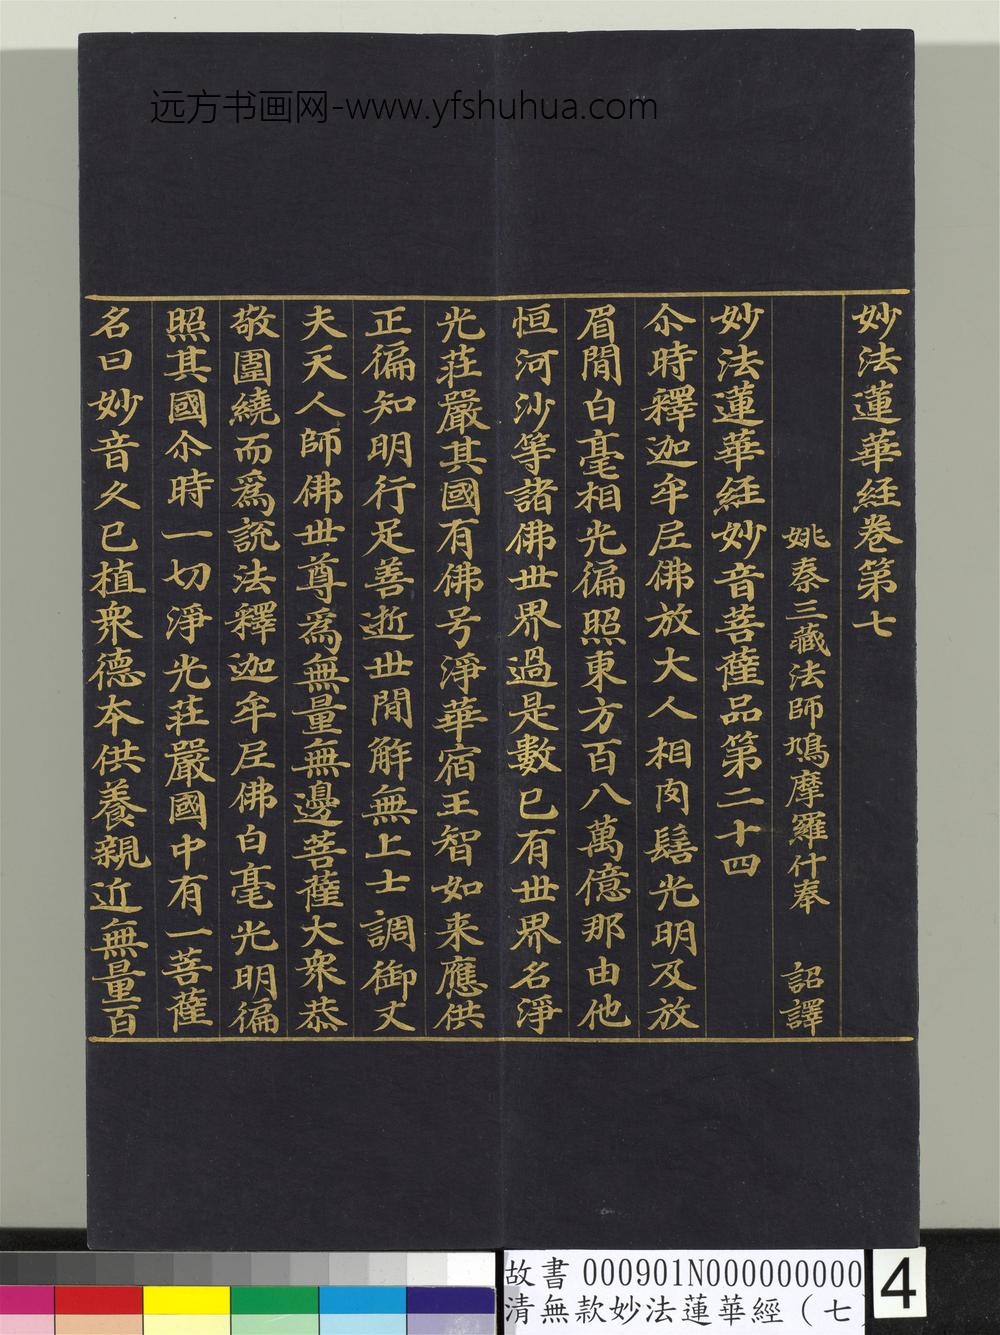 远方书画网-www.yfshuhua.com
妙法蓮華経卷第七
姚秦三藏法師鳩摩羅什奉 詔譯
妙法蓮華経妙音菩薩品第二十四
尒時釋迦牟尼佛放大人相肉髻光明及放
眉間白毫相光徧照東方百八萬億那由他
恒河沙等諸佛世界過是數已有世界名淨
光莊嚴其國有佛号淨華宿王智如来應供
正徧知明行足善逝世間解無上士調御丈
夫天人師佛世尊為無量無邊菩薩大眾恭
敬圍繞而為說法釋迦牟尼佛白毫光明徧
照其國尒時一切淨光莊嚴國中有一菩薩
名曰妙音久已植眾德本供養親近無量百
故書 000901N000000000
清無款妙法蓮華經（七）
4